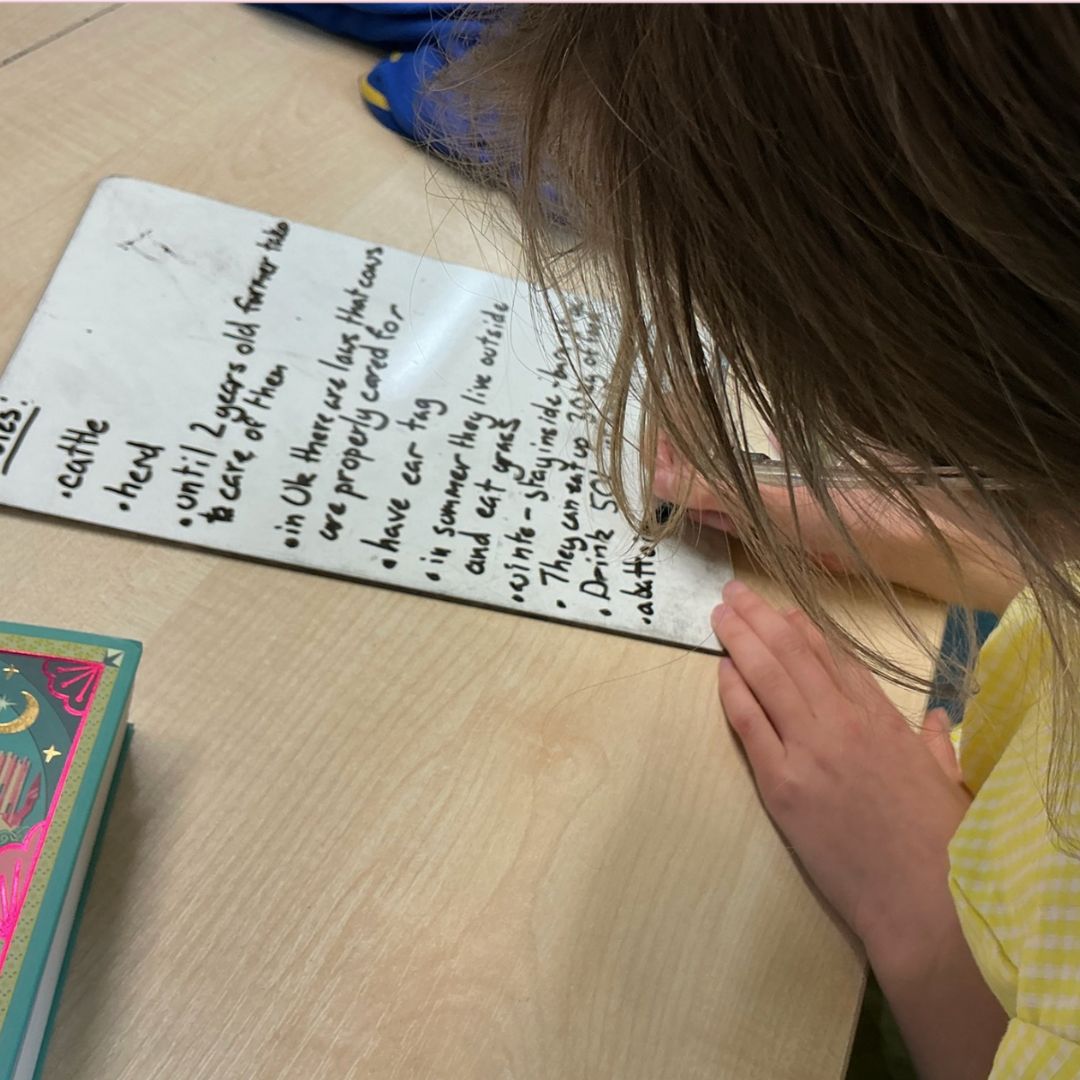 • cattle
• herd
• until 2 years old farmer take
to care of then
• in Uk there are laws that cows
are properly cared for
• have ear tag
• in summer they live outside
and eat grass
• winte - stay inside
• They can eat up
• Drink 50